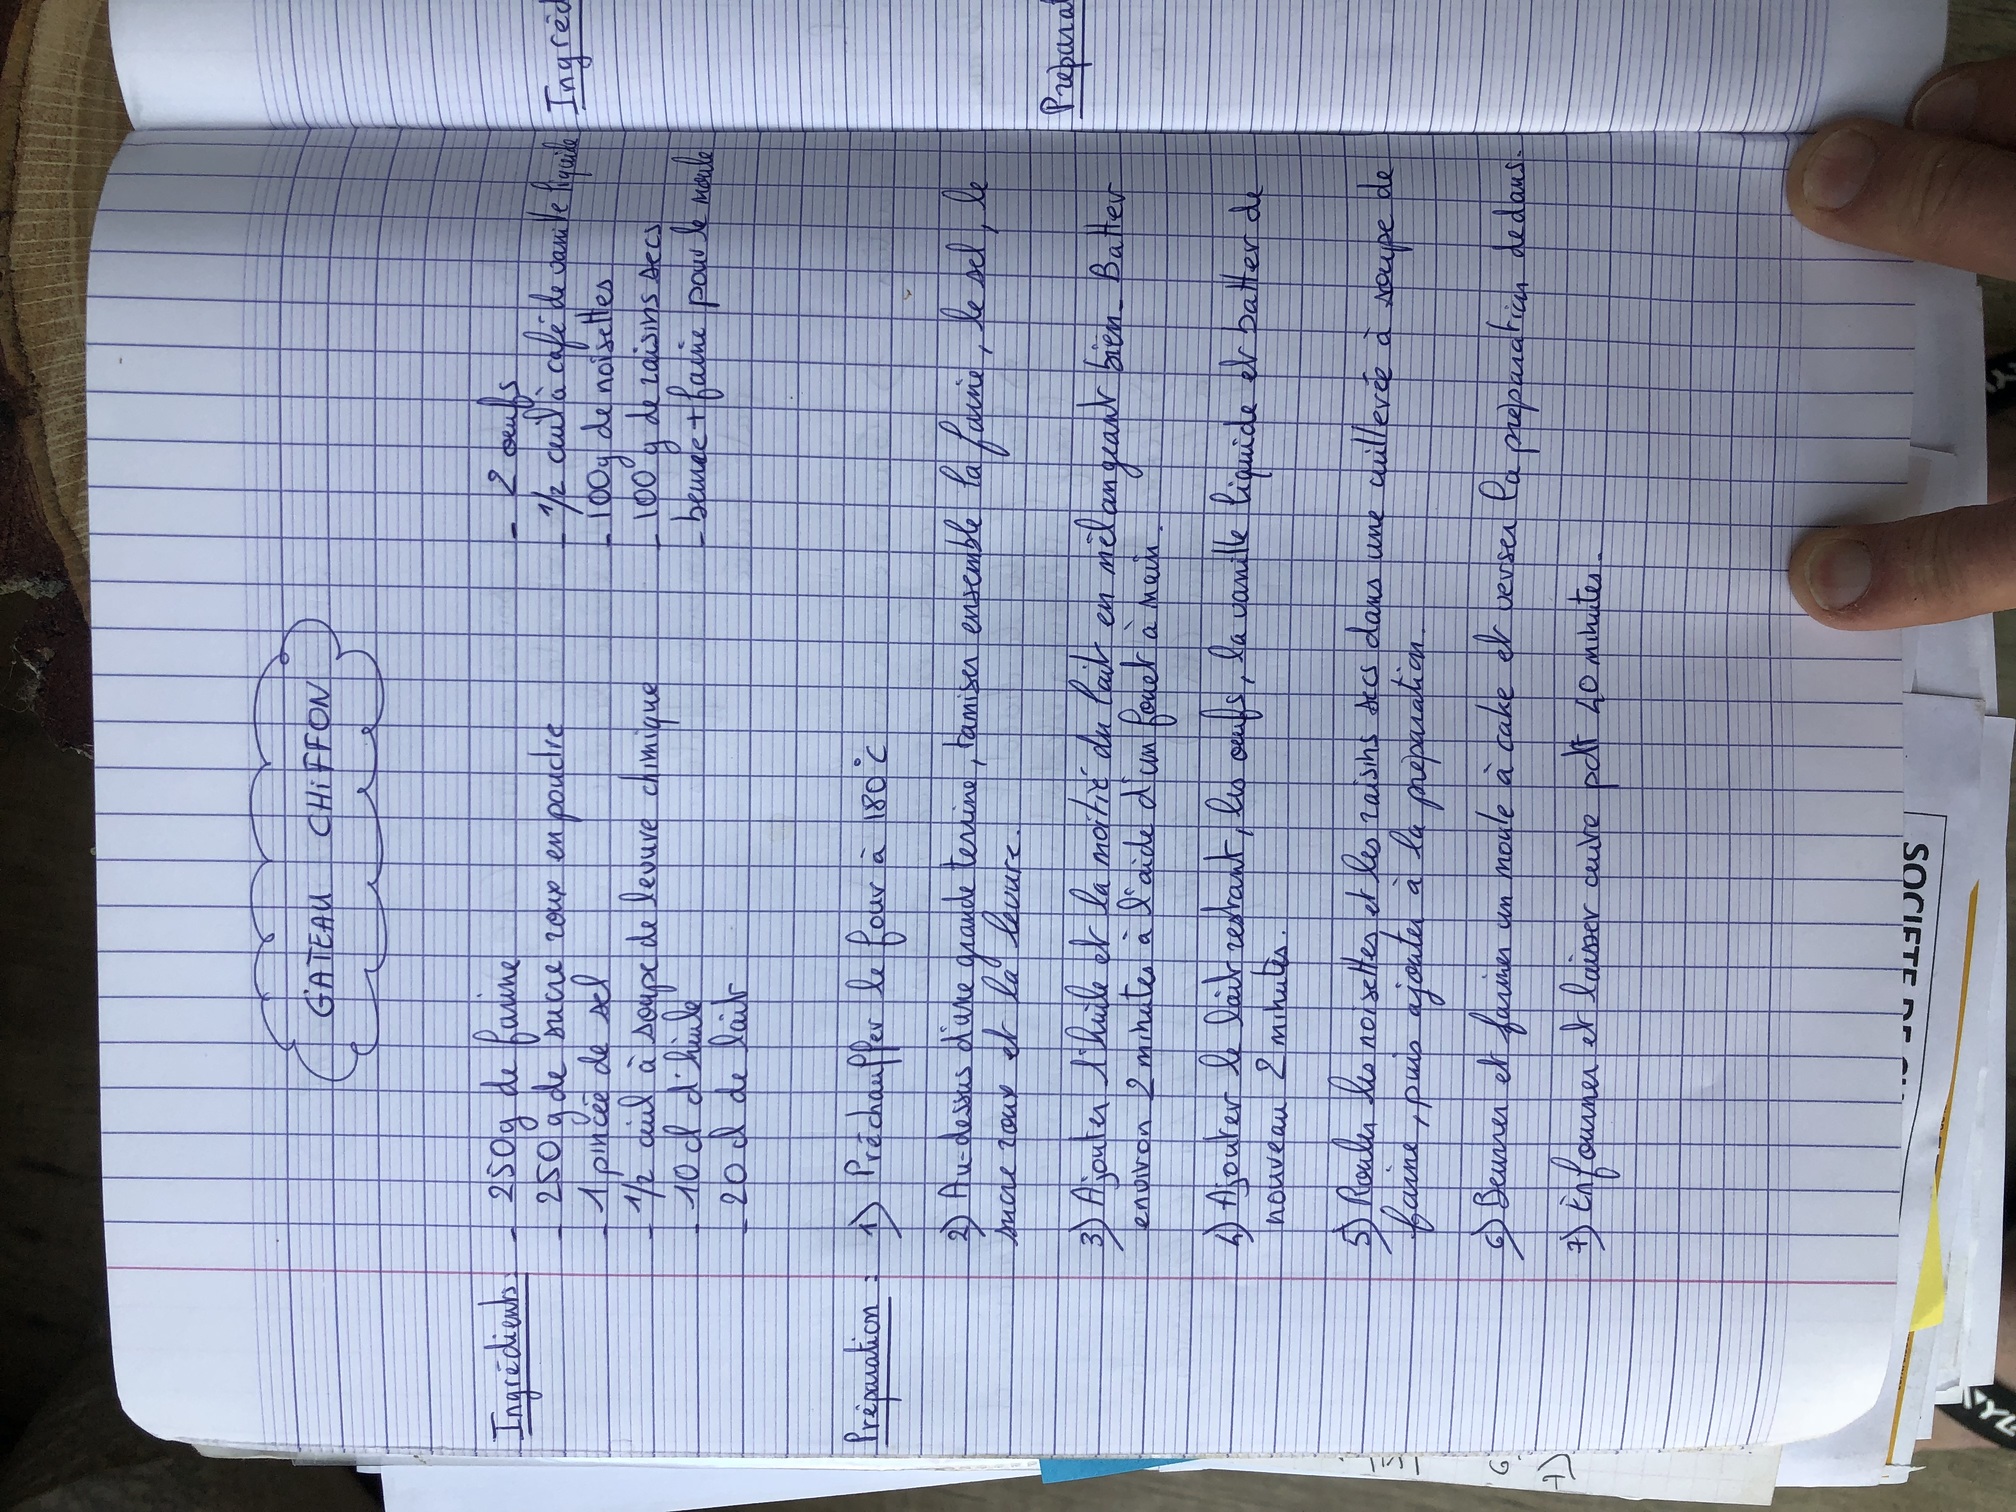 GATEAU CHIFFON
Ingrédients:
- 250g de farine
- 250g de sucre roux en poudre
- 1 pincée de sel
- 1/2 cuil à soupe de levure chimique
- 10cl d'huile
- 20cl de lait
- 2 œufs
- 1/2 cuil à café de vanille liquide
- 100g de noisettes
- 100g de raisins secs
- beurre + farine pour le moule
Préparation : 1) Préchauffer le four à 180°C
2) Au-dessus d'une grande terrine, tamiser ensemble la farine, le sel, le
sucre roux et la levure.
3) Ajouter l'huile et la moitié du lait en mélangeant bien. Batter
environ 2 minutes à l'aide d'un fouet à main.
4) Ajouter le lait restant, les œufs, la vanille liquide et batter de
nouveau 2 minutes.
5) Rouler les noisettes et les raisins secs dans une cuillerée à soupe de
farine, puis ajouter à la préparation.
6) Beurrer et fariner un moule à cake et verser la préparation dedans.
7) Enfourner et laisser cuire pdt 40 minutes.
Ingréd
Préparat
SOCIETE DE